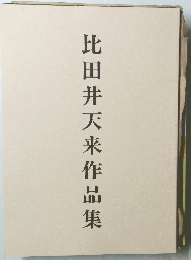 比田井天来作品集